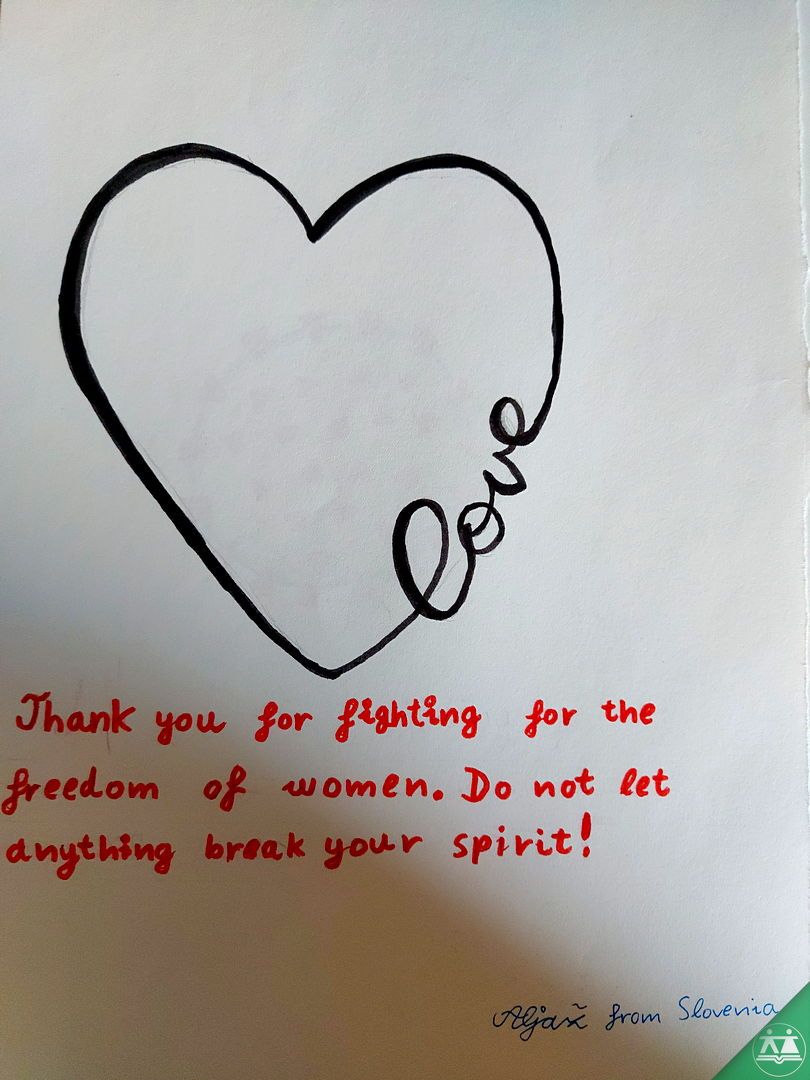 love
Thank you for fighting for the
freedom of women. Do not let
anything break your spirit!
Aljaž from Slovenia